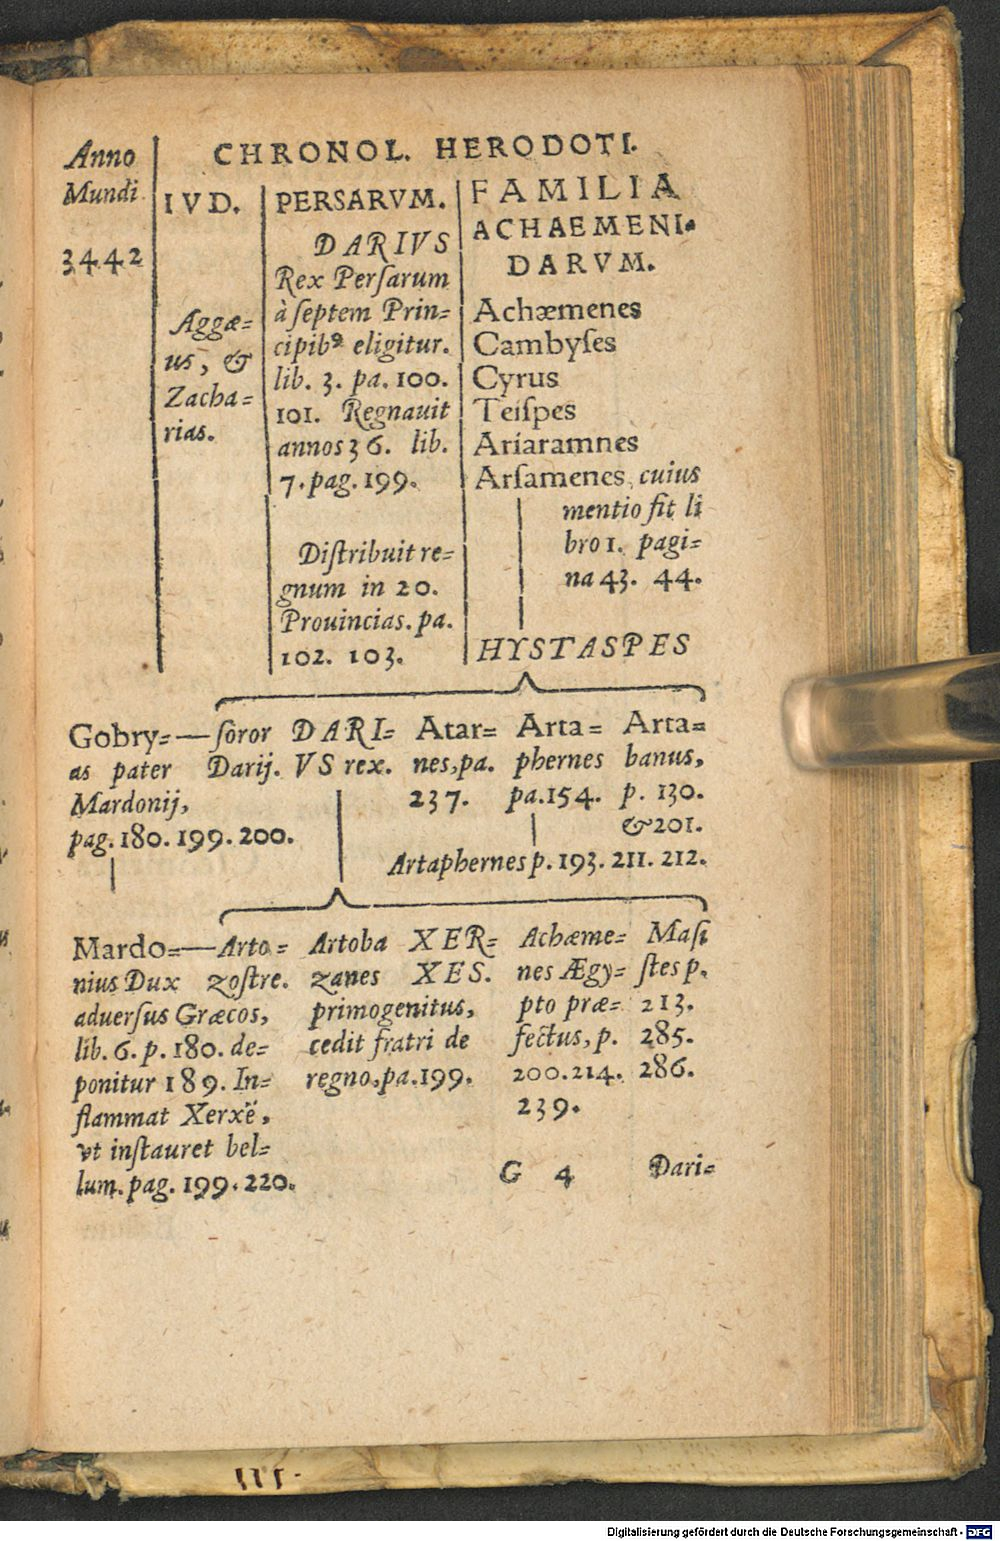 CHRONOL. HERODOTI.
Anno
Mundi
3442
IVD.
Aggæ=
us, &
Zacha=
rias.
PERSARVM.
DARIVS
Rex Perſarum
à ſeptem Prin=
cipibꝰ eligitur.
lib. 3. pa. 100.
101. Regnauit
annos 36. lib.
7. pag. 199.
Diſtribuit re=
gnum in 20.
Prouincias. pa.
102. 103.
FAMILIA
ACHAEMENI=
DARVM.
Achæmenes
Cambyſes
Cyrus
Teiſpes
Ariaramnes
Arſamenes, cuius
mentio fit li
bro 1. pagi=
na 43. 44.
HYSTASPES
Gobry=
as pater
Mardonij,
pag. 180. 199. 200.
ſoror
Darij.
DARI=
VS rex.
Atar=
nes, pa.
237.
Arta=
phernes
pa. 154.
Arta=
banus,
p. 130.
& 201.
Artaphernes p. 193. 211. 212.
Mardo=
nius Dux
aduerſus Græcos,
lib. 6. p. 180. de=
ponitur 189. In=
flammat Xerxē,
vt inſtauret bel=
lum. pag. 199. 220.
Arto=
zoſtre.
Artoba
zanes
primogenitus,
cedit fratri de
regno, pa. 199.
XER=
XES.
Achæme=
nes Ægy=
pto præ=
fectus, p.
200. 214.
239.
Maſi
ſtes p.
213.
285.
286.
G 4
Dari=
Digitalisierung gefördert durch die Deutsche Forschungsgemeinschaft - DFG